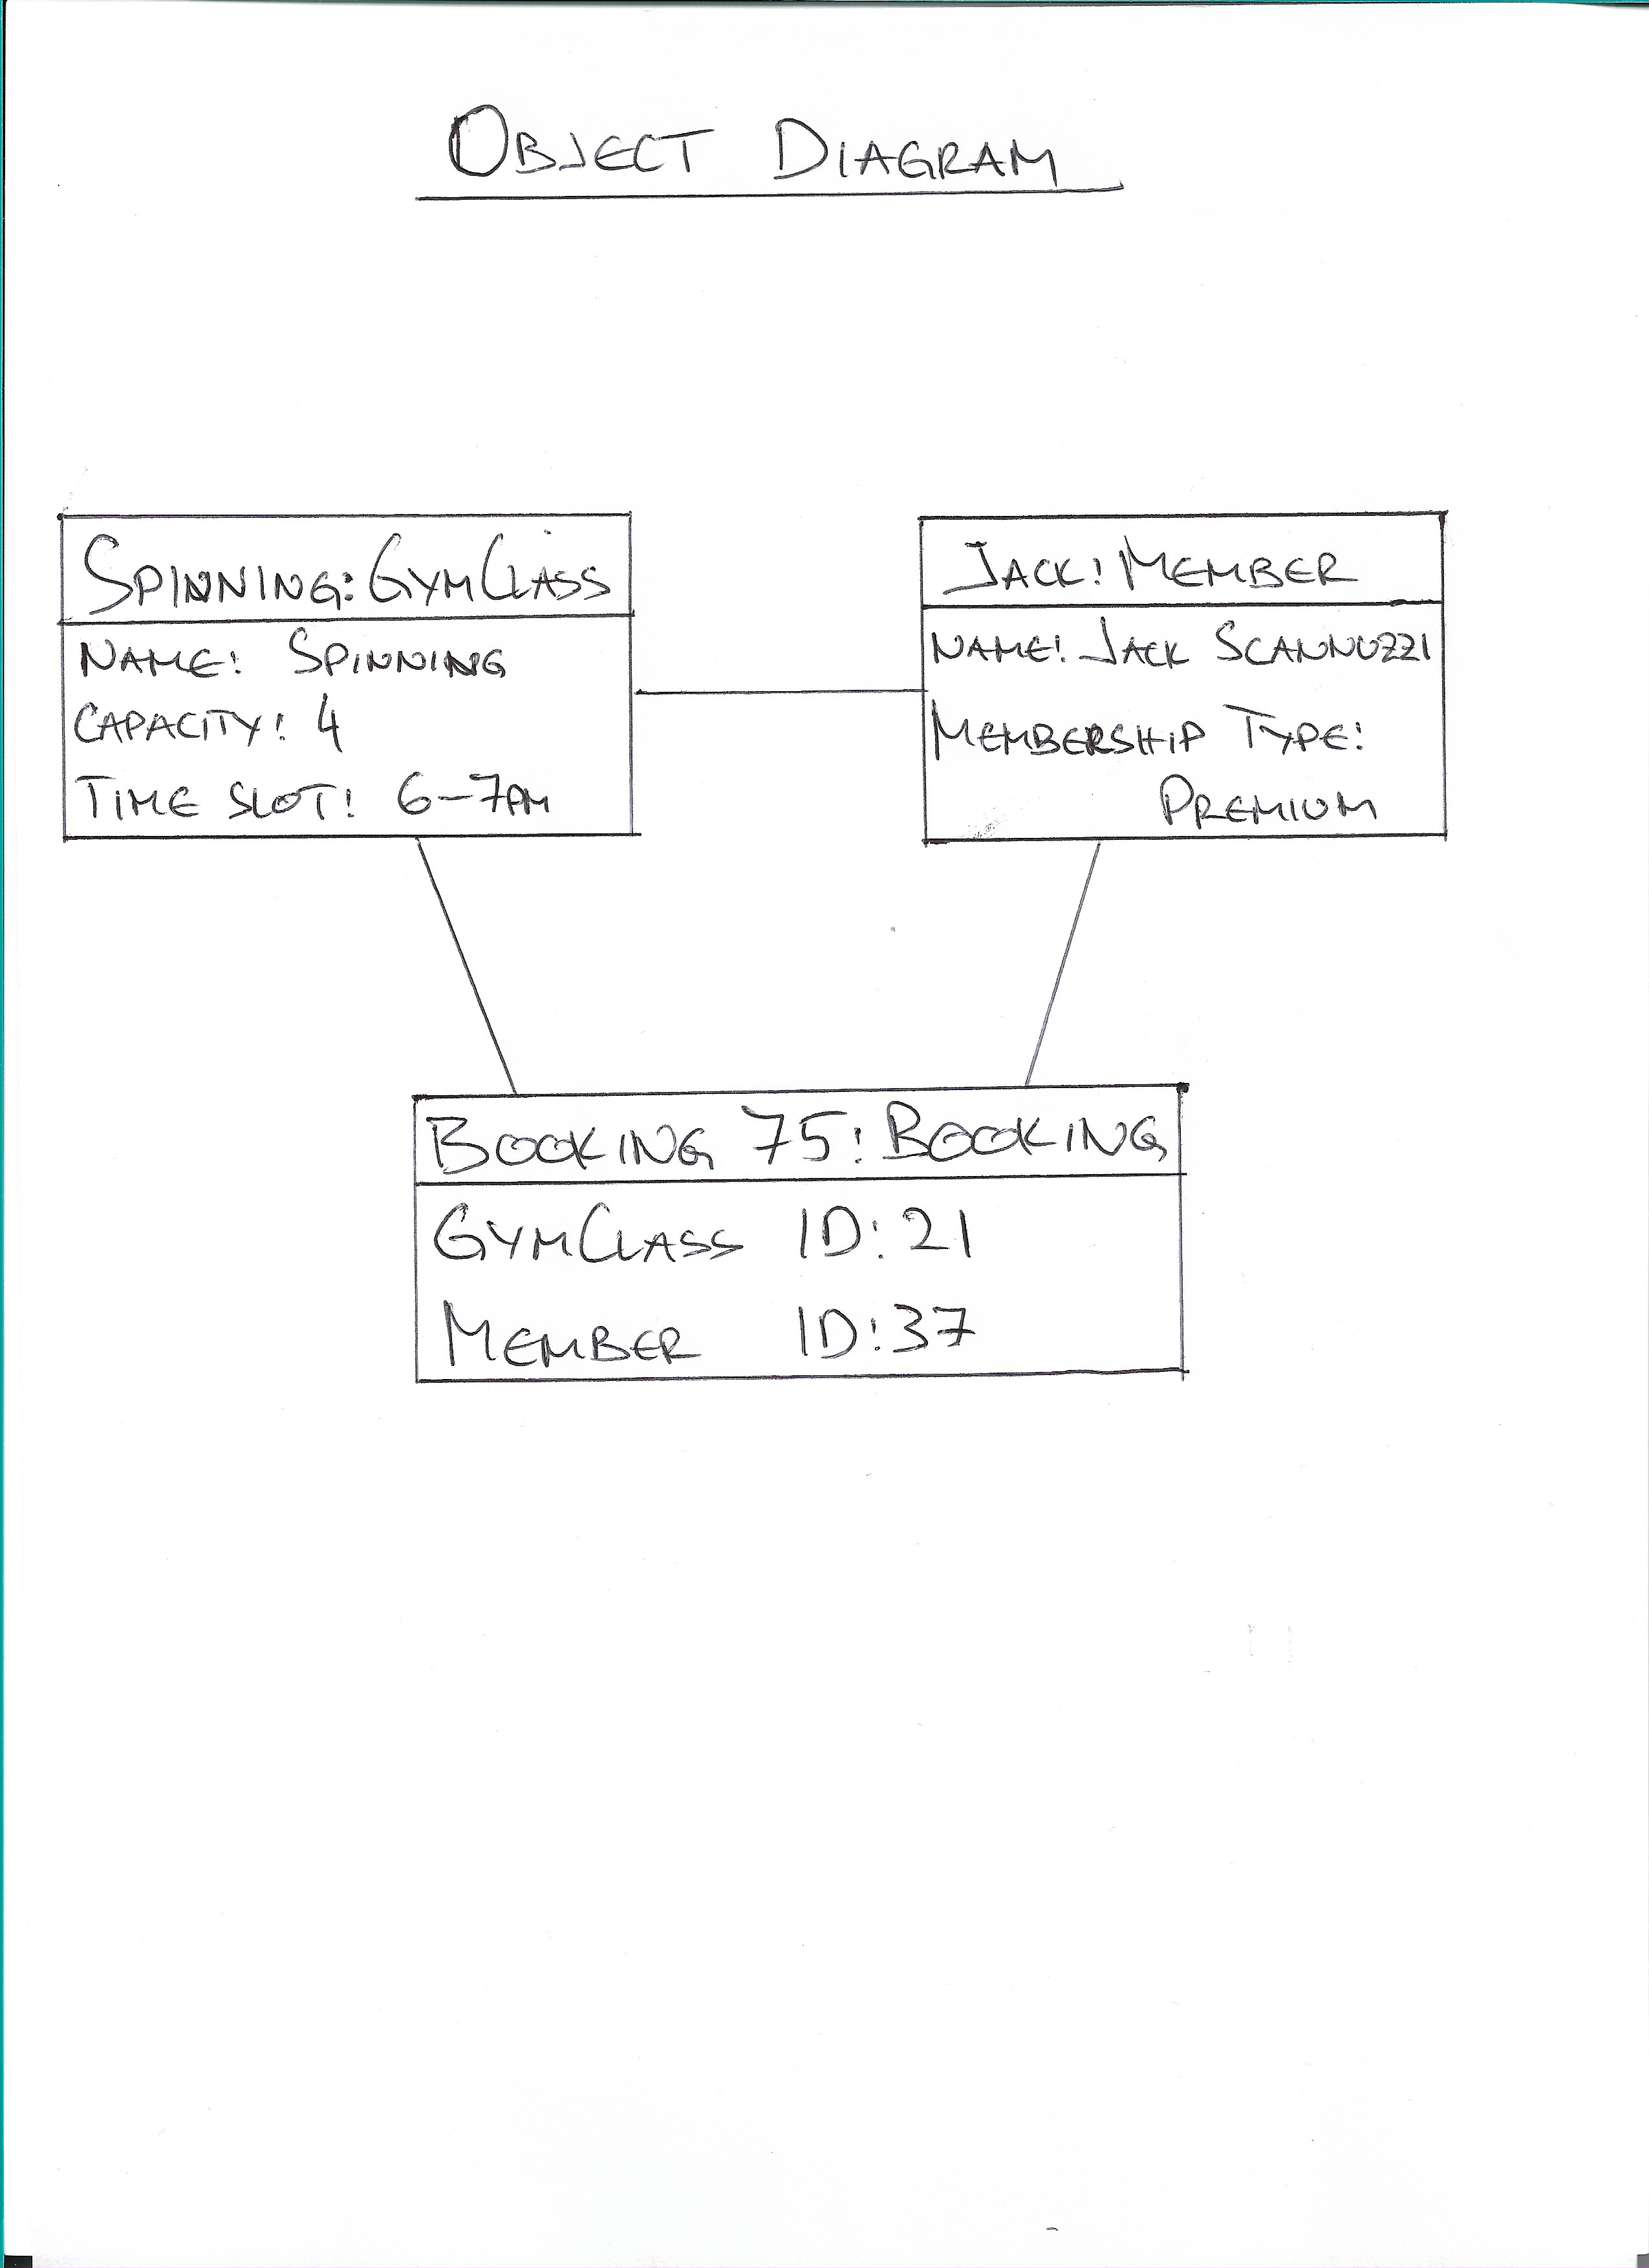 OBJECT DIAGRAM
SPINNING: GYMCLASS
NAME: SPINNING
CAPACITY: 4
TIME SLOT: 6-7PM
JACK: MEMBER
NAME: JACK SCANNUZZI
MEMBERSHIP TYPE:
PREMIUM
BOOKING 75: BOOKING
GYMCLASS ID: 21
MEMBER ID: 37